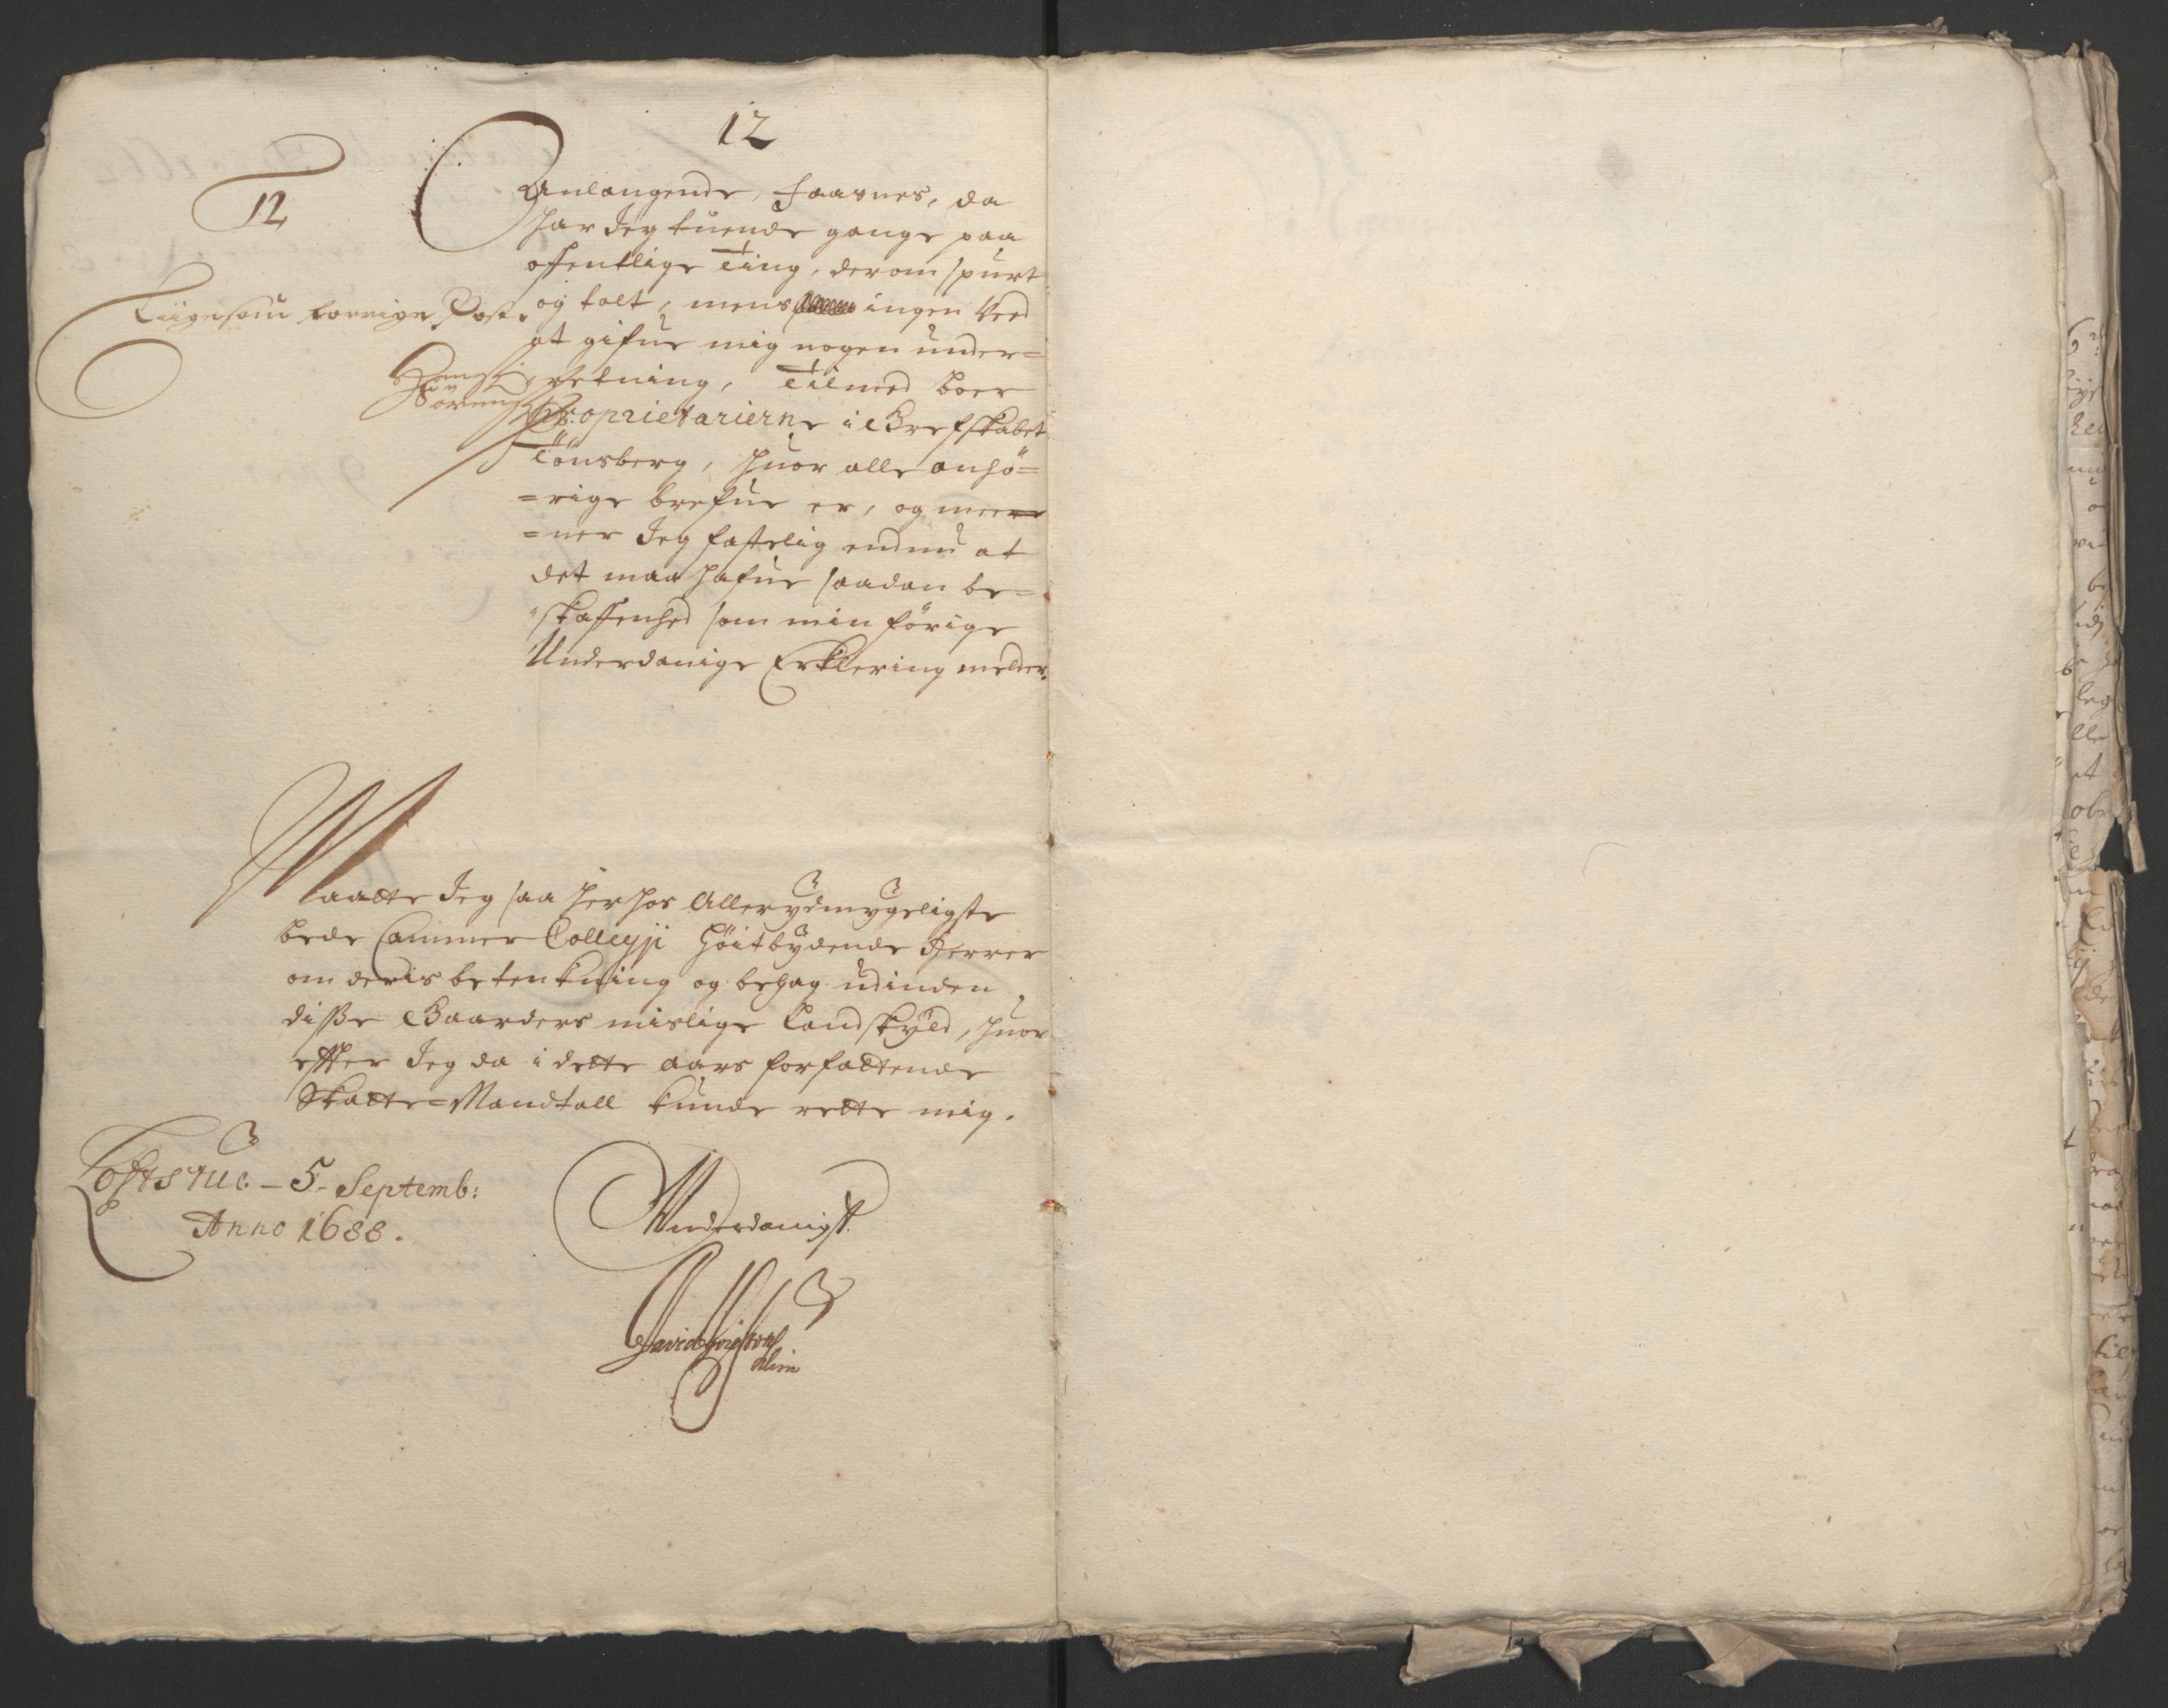 12
12
Liigesom forrige Post.
Anlangende, Faasnes, da
har Jeg tuende gange paa
offentlige Ting, derom spurt
og talt, mens ingen veed
at gifue mig nogen under=
retning, Tilmed boer
Proprietarierne i Grefskabet
Tönsberg, huor alle anhö=
=rige brefue er, og mee
=ner Jeg fastelig endnu at
det maa hafue saadan be=
skaffenhed som min förige
Underdanige Erklering melder.
Maatte Jeg saa herhos Allerydmygeligste
bede Cammer Collegji höitbydende Herrer
om deris betenkning og behag udinden
disse Gaarders mislige Landskyld, huor
effter Jeg da i dette aars forfattende
Skatte=Mandtall kunde rette mig.
Loftstue - 5 - Septemb:
Anno 1688.
Underdanigst.